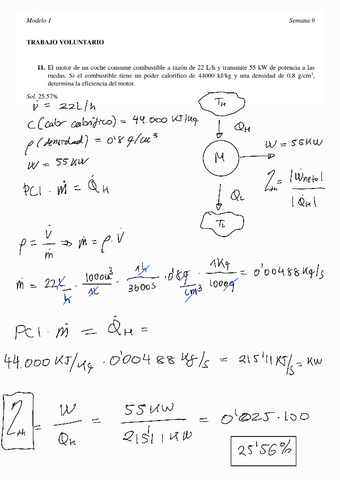 Modelo 1 Semana 9
TRABAJO VOLUNTARIO
11. El motor de un coche consume combustible a razón de 22 L/h y transmite 55 kW de potencia a las
ruedas. Si el combustible tiene un poder calorífico de 44000 kJ/kg y una densidad de 0.8 g/cm³,
determina la eficiencia del motor.
Sol. 25.57%
V̇ = 22L/h
C(calor calorífico) = 44.000 KJ/Kg
ρ(densidad) = 0'8 g/cm³
W = 55KW
PCI · ṁ = Q̇H
TH
Q̇H
M
W = 55KW
QL
TL
ηth = |Wneto| / |QH|
ρ = V̇/m ⇒ ṁ = ρ · V̇
ṁ = 22 L/h · 1000 cm³/1L · 1h/3600s · 0'8g/cm³ · 1Kg/1000g = 0'00488 Kg/s
PCI · ṁ = Q̇H =
44.000 KJ/Kg · 0'00488 Kg/s = 215'11 KJ/s = KW
ηth = W/QH = 55KW/215'11KW = 0'025·100
25'56%